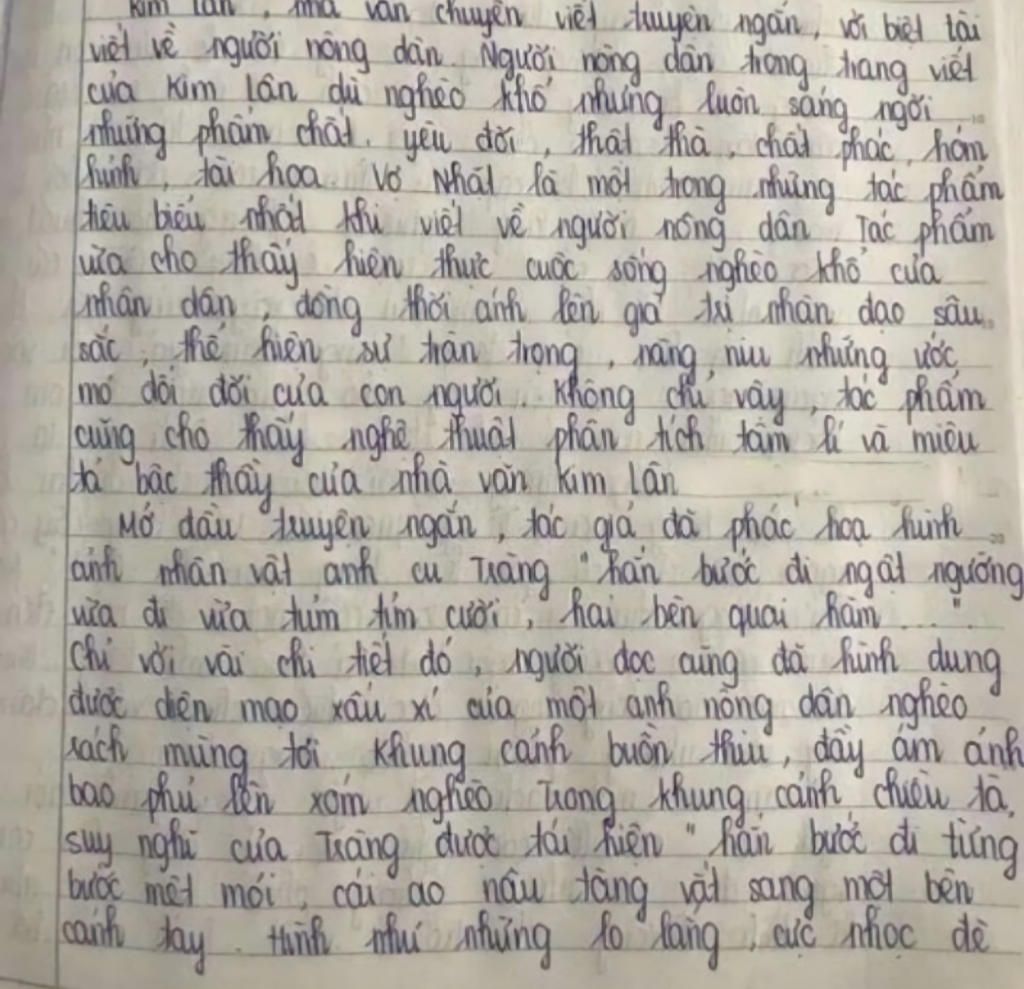 Kim Lân, nhà văn chuyên viết truyện ngắn, với biệt tài
viết về người nông dân. Người nông dân trong trang viết
của Kim Lân dù nghèo khổ nhưng luôn sáng ngời
những phẩm chất. yêu đời, thật thà, chất phác, hóm
hỉnh, tài hoa. Vợ Nhặt là một trong những tác phẩm
tiêu biểu nhất khi viết về người nông dân Tác phẩm
vừa cho thấy hiện thực cuộc sống nghèo khổ của
nhân dân, đồng thời ánh lên giá trị nhân đạo sâu
sắc, thể hiện sự trân trọng, nâng niu những ước
mơ đổi đời của con người. Không chỉ vậy, tác phẩm
cũng cho thấy nghệ thuật phân tích tâm lí và miêu
tả bậc thầy của nhà văn Kim Lân
Mở đầu truyện ngắn, tác giả đã phác hoạ hình
ảnh nhân vật anh cu Tràng "hắn bước đi ngật ngưỡng
vừa đi vừa tủm tỉm cười, hai bên quai hàm ...."
Chỉ với vài chi tiết đó, người đọc cũng đã hình dung
được diện mạo xấu xí của một anh nông dân nghèo
rách mùng tơi Khung cảnh buồn thiu, đầy ám ảnh
bao phủ lên xóm nghèo. Trong khung cảnh chiều tà,
suy nghĩ của Tràng được tái hiện "hắn bước đi từng
bước mệt mỏi, cái áo nâu tàng vắt sang một bên
cánh tay. Hình như những lo lắng, cực nhọc đè